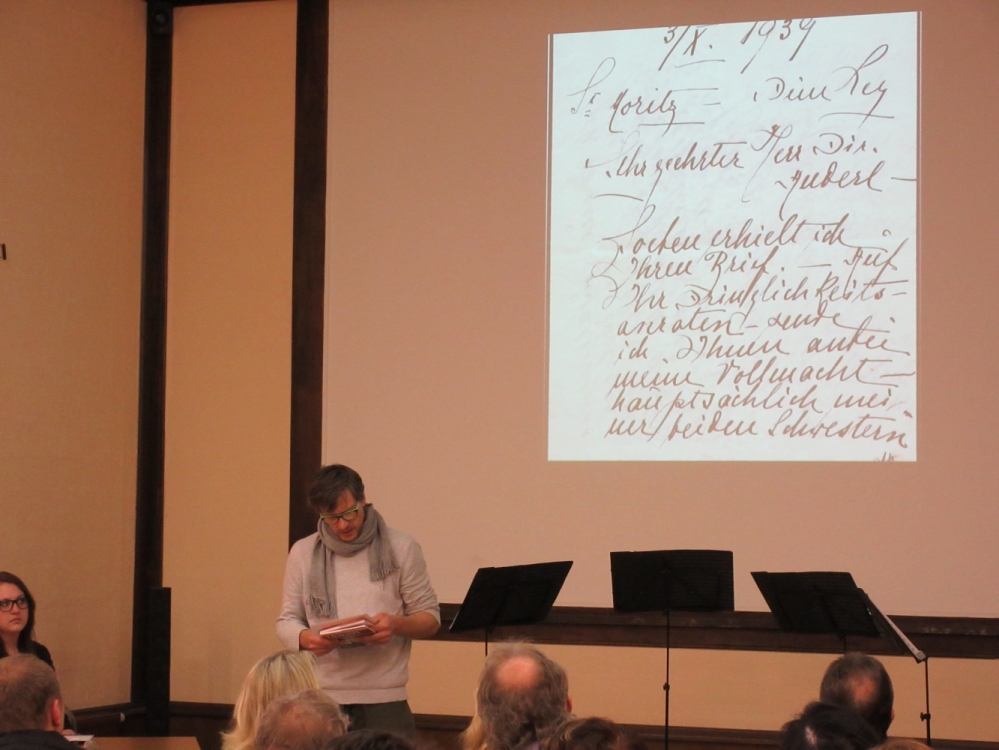 3/X. 1939
St Moritz –
Sehr geehrter Herr Dir.
Soeben erhielt ich
Ihren Brief. — Auf
Ihr Dringlichkeits-
anraten – sende
ich Ihnen anbei
meine Vollmacht –
hauptsächlich mei-
ner beiden Schwestern